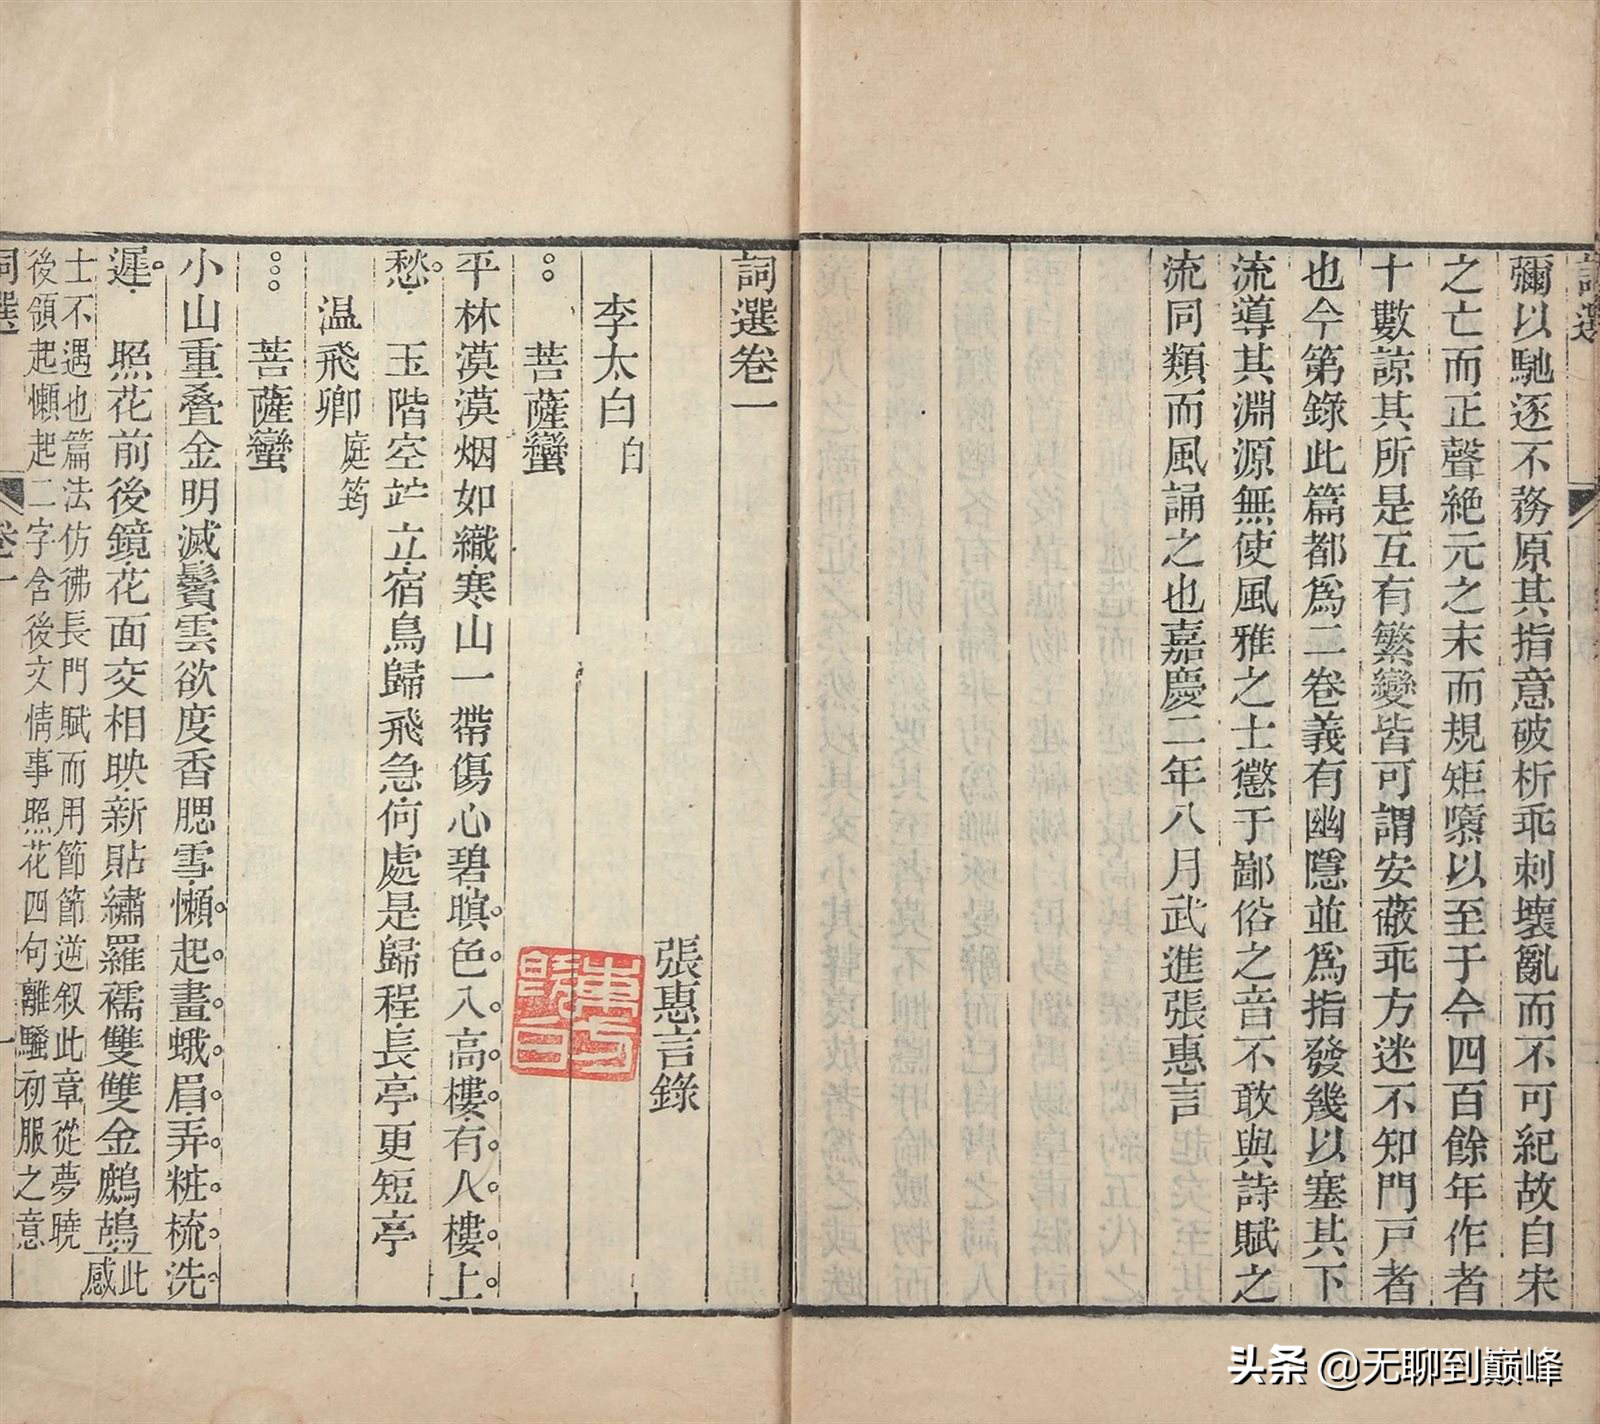 詞選
彌以馳逐不務原其指意破析乖刺壞亂而不可紀故自宋
之亡而正聲絕元之末而規矩隳以至于今四百餘年作者
十數諒其所是互有繁變皆可謂安蔽乖方迷不知門戸者
也今第錄此篇都爲二卷義有幽隱並爲指發幾以塞其下
流導其淵源無使風雅之士懲于鄙俗之音不敢與詩賦之
流同類而風誦之也嘉慶二年八月武進張惠言
詞選卷一
張惠言錄
李太白 白
菩薩蠻
平林漠漠烟如織寒山一帶傷心碧暝色入高樓有人樓上
愁 玉階空竚立宿鳥歸飛急何處是歸程長亭更短亭
温飛卿 庭筠
菩薩蠻
小山重叠金明滅鬢雲欲度香腮雪懶起畫蛾眉弄粧梳洗
遲 照花前後鏡花面交相映新貼繡羅襦雙雙金鷓鴣 此感
士不遇也篇法仿彿長門賦而用節節逆叙此章從夢曉
後領起懶起二字含後文情事照花四句離騷初服之意
詞選 卷一 一
头条 @无聊到巅峰